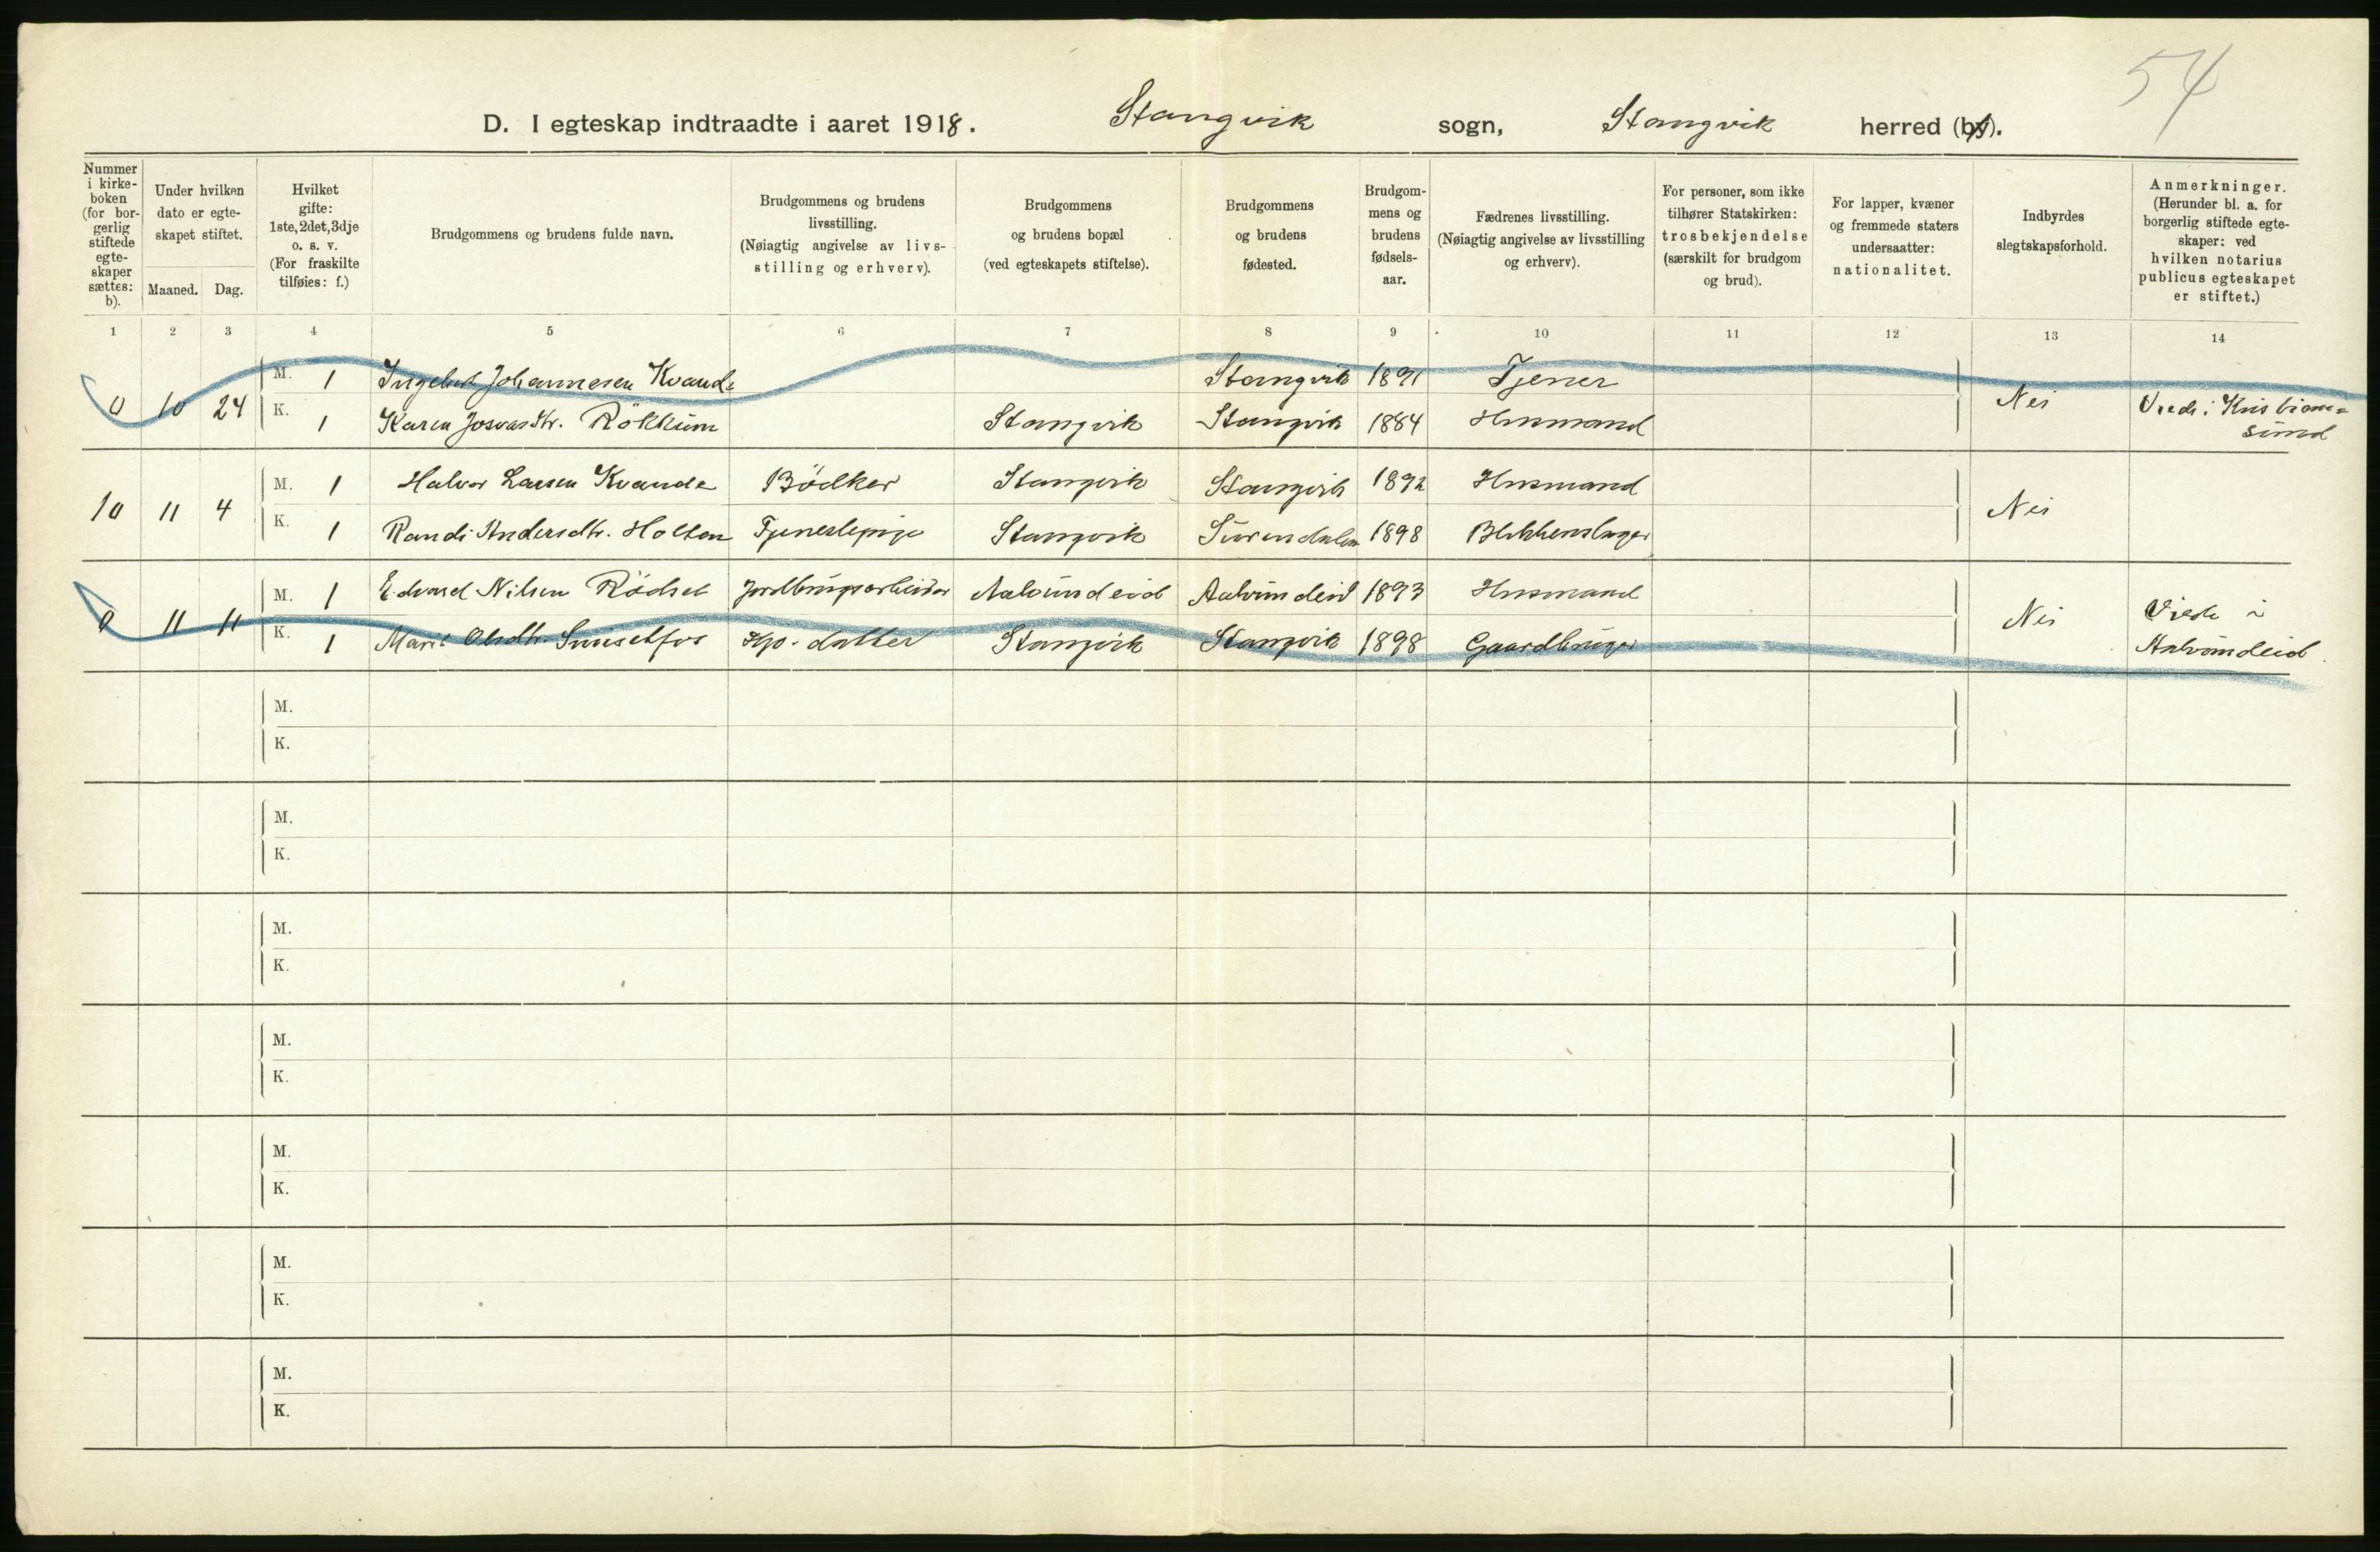 54
D. I egteskap indtraadte i aaret 1918. Stangvik sogn, Stangvik herred (by).
Nummer i kirkeboken (for borgerlig stiftede egteskaper sættes: b).
Under hvilken dato er egteskapet stiftet.
Maaned. Dag.
Hvilket gifte: 1ste, 2det, 3dje o. s. v. (For fraskilte tilføies: f.)
Brudgommens og brudens fulde navn.
Brudgommens og brudens livsstilling. (Nøiagtig angivelse av livsstilling og erhverv).
Brudgommens og brudens bopæl (ved egteskapets stiftelse).
Brudgommens og brudens fødested.
Brudgommens og brudens fødselsaar.
Fædrenes livsstilling. (Nøiagtig angivelse av livsstilling og erhverv).
For personer, som ikke tilhører Statskirken: trosbekjendelse (særskilt for brudgom og brud).
For lapper, kvæner og fremmede staters undersaatter: nationalitet.
Indbyrdes slegtskapsforhold.
Anmerkninger. (Herunder bl. a. for borgerlig stiftede egteskaper: ved hvilken notarius publicus egteskapet er stiftet.)
1 2 3 4 5 6 7 8 9 10 11 12 13 14
0 10 24 M. 1 Ingebrt Johannesen Kvande Stangvik 1891 Tjener Nei Viede i Kristian=
K. 1 Karen Josvasdtr. Rökkum Stangvik Stangvik 1884 Husmand sund
10 11 4 M. 1 Halvor Larsen Kvande Bödker Stangvik Stangvik 1892 Husmand Nei
K. 1 Randi Andersdtr. Holten Tjenestepige Stangvik Surendalen 1898 Blikkenslager
0 11 11 M. 1 Edvard Nilsen Rödset Jordbrugsarbeider Aalvundeid Aalvundeid 1893 Husmand Nei Viede i
K. 1 Marit Olsdtr. Stangvik Stangvik 1898 Gaardbruger Aalvundeid
M.
K.
M.
K.
M.
K.
M.
K.
M.
K.
M.
K.
M.
K.